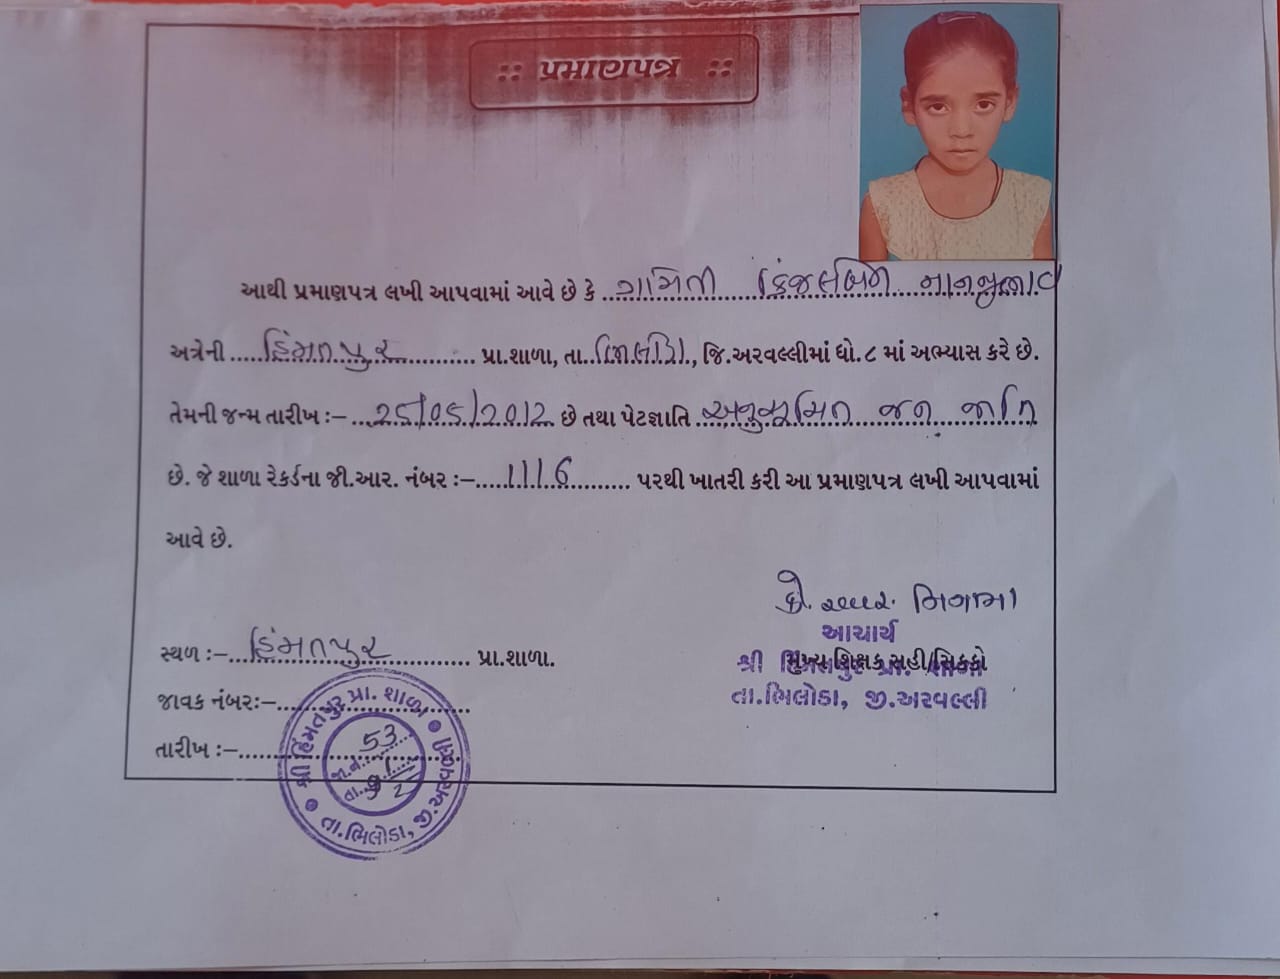 :: પ્રમાણપત્ર ::
આથી પ્રમાણપત્ર લખી આપવામાં આવે છે કે ગામેતી કિંજલબેન નાનજીભાઈ
અત્રેની હિંમતપુર પ્રા.શાળા, તા. ભિલોડા, જિ.અરવલ્લીમાં ધો.૮ માં અભ્યાસ કરે છે.
તેમની જન્મ તારીખ :- 25/05/2012 છે તથા પેટજ્ઞાતિ અનુસૂચિત જન જાતિ
છે. જે શાળા રેકર્ડના જી.આર. નંબર :- 1116 પરથી ખાતરી કરી આ પ્રમાણપત્ર લખી આપવામાં
આવે છે.
આચાર્ય
સ્થળ :- હિંમતપુર પ્રા.શાળા.
મુખ્ય શિક્ષક સહી/સિક્કો
શ્રી હિંમતપુર પ્રા. શાળા
તા.ભિલોડા, જી.અરવલ્લી
જાવક નંબર:-
તારીખ :-
શ્રી હિંમતપુર પ્રા. શાળા
તા.ભિલોડા, જી.અરવલ્લી
જા.નં. 53